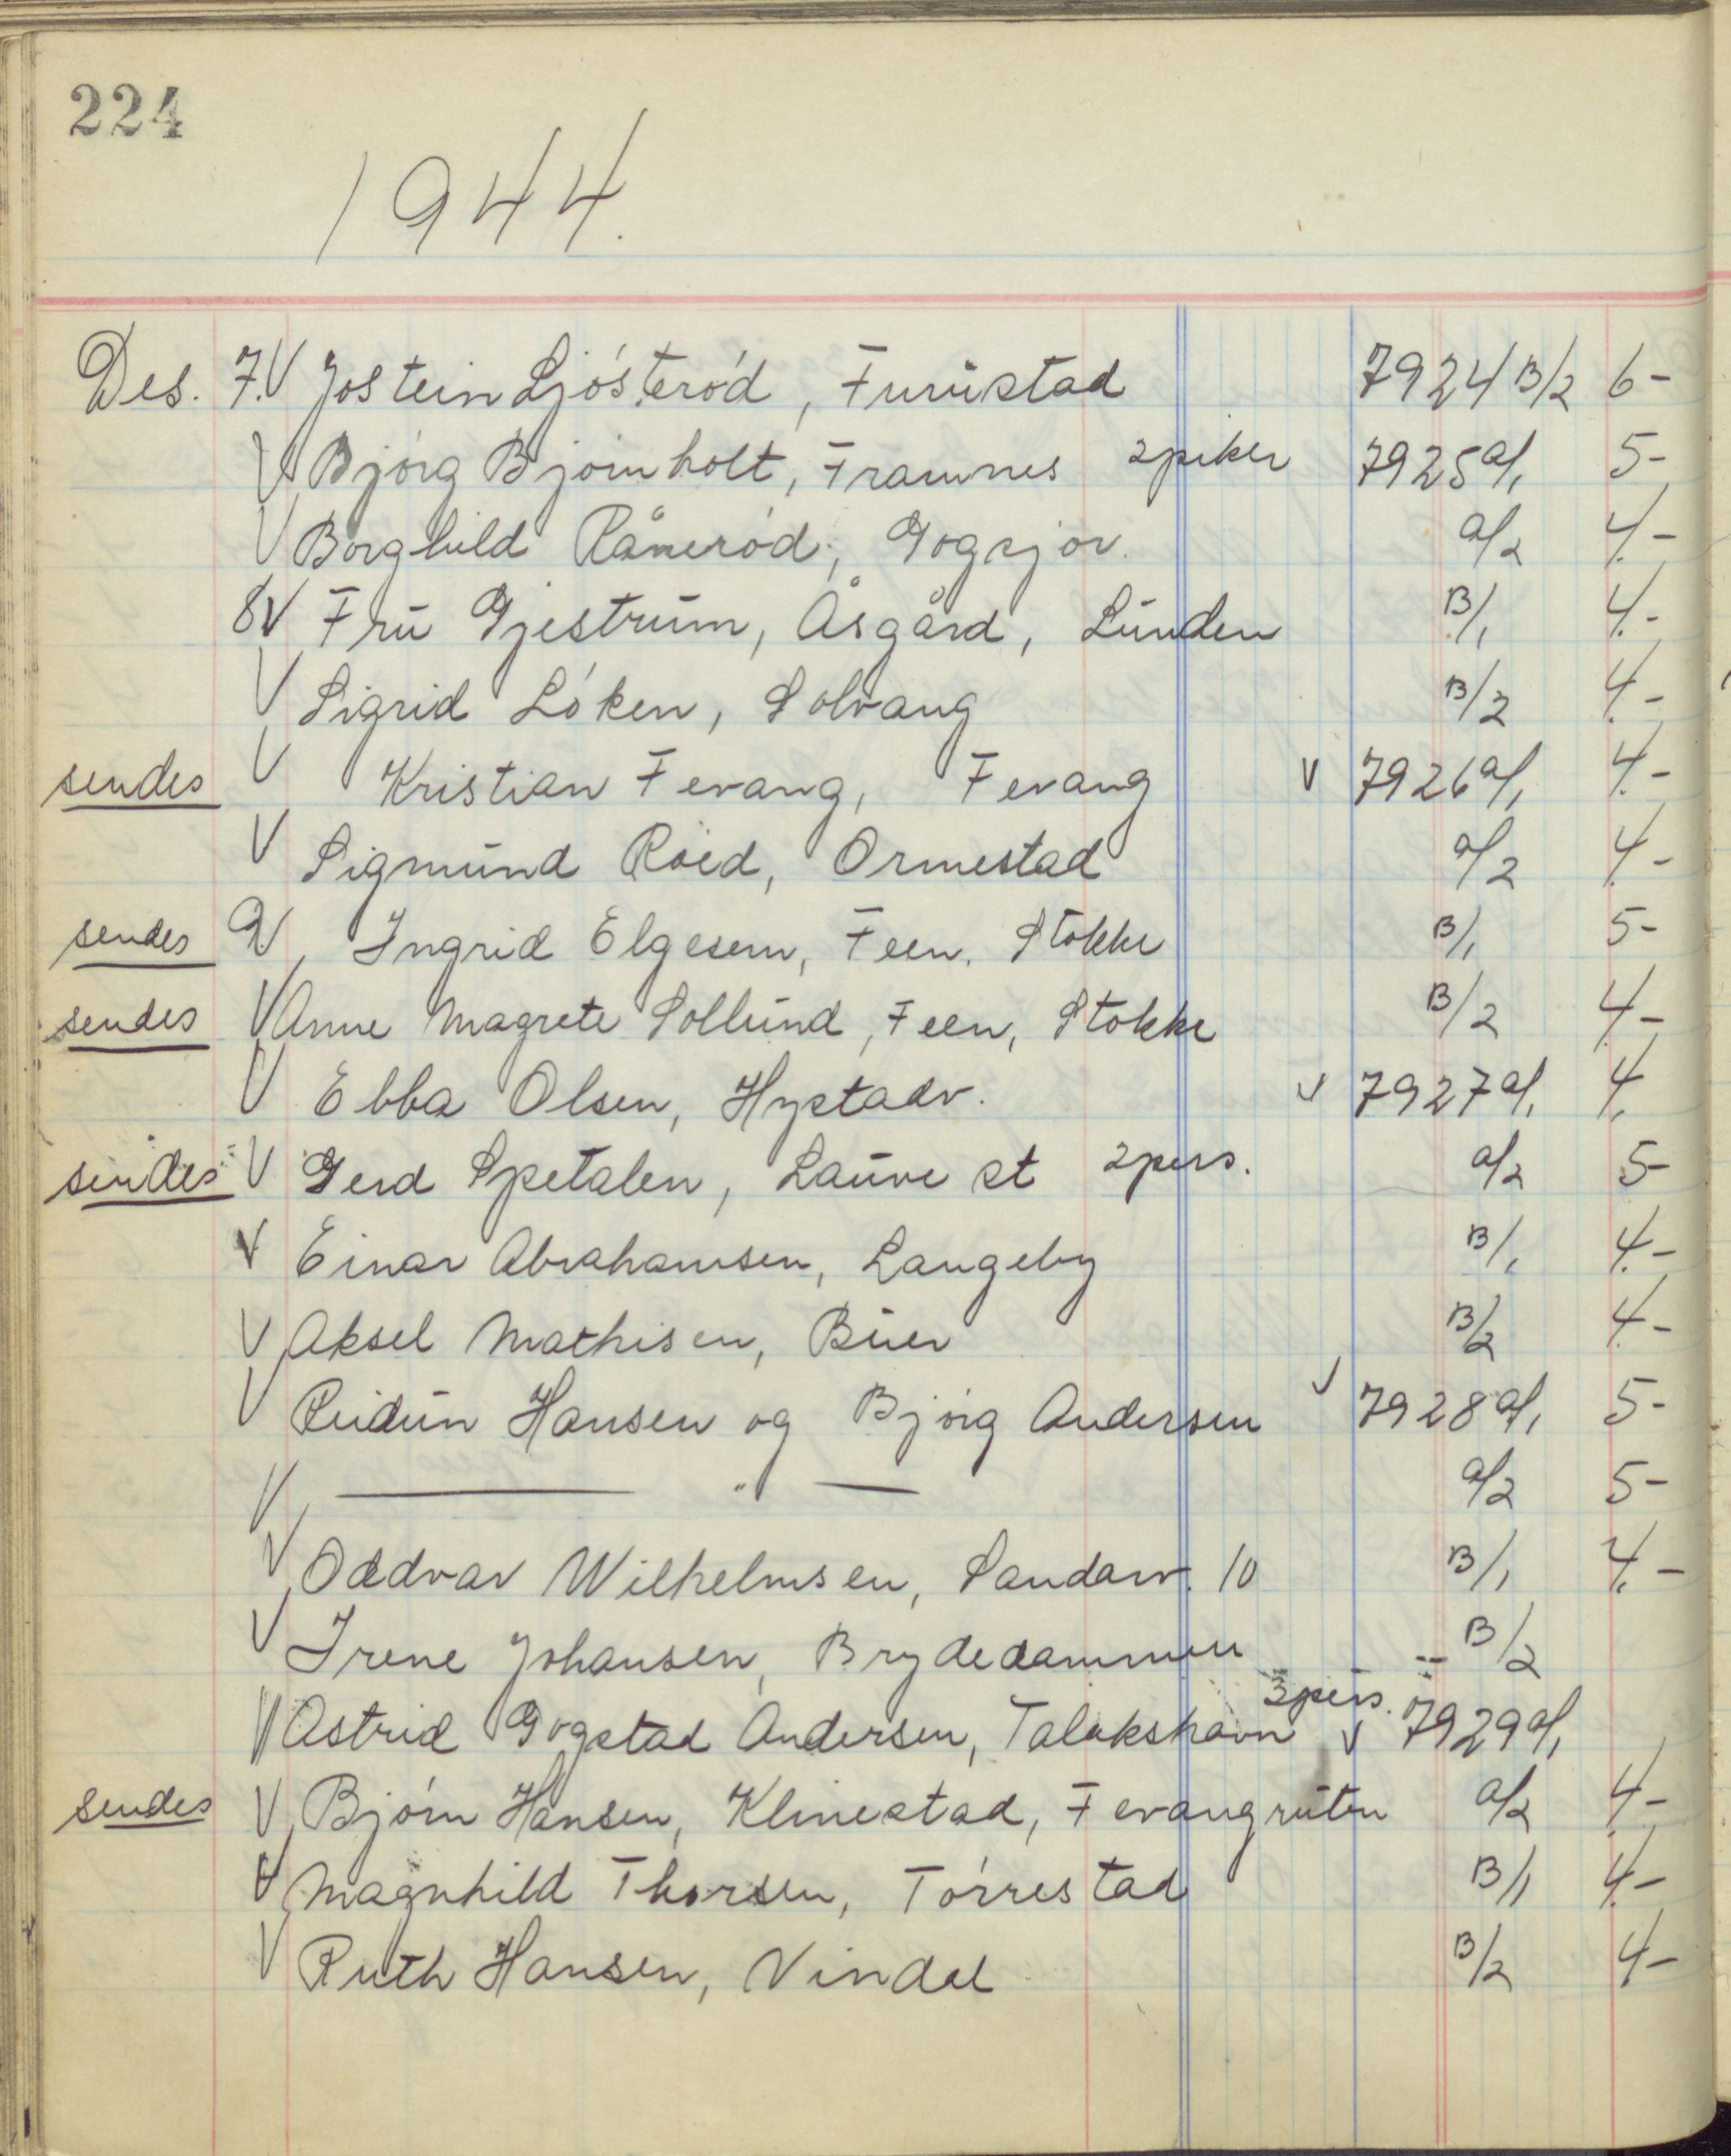 224
1944.
Des. 7. V Jostein Ljósteród, Furustad 7924 B/2 6-
V Bjórg Bjórnholt, Framnes 2 piker 7925 a/1 5-
V Borghild Råneród, Gogsjóv. a/2 4.-
8 V Fru Gjestrum, Åsgård, Lunden B/1 4.-
V Sigrid Lóken, Solvang B/2 4.-
sendes V Kristian Fevang, Fevang V 7926 a/1 4.-
V Sigmund Róed, Ormestad a/2 4.-
sendes 9 V Ingrid Elgesem, Feen, Stokke B/1 5-
sendes V Anne Magrete Sollund, Feen, Stokke B/2 4.-
V Ebba Olsen, Hystadv. V 7927 a/1 4.
sendes V Gerd Spetalen, Lauve st 2 pers. a/2 5-
V Einar Abrahamsen, Langeby B/1 4.-
V Aksel Mathisen, Buer B/2 4.-
V Reidun Hansen og Bjórg Andersen V 7928 a/1 5-
V — " — a/2 5-
V Oddvar Wilhelmsen, Sandarv. 10 B/1 4.-
V Irene Johansen, Brydedammen -- B/2
V Astrid Gogstad Andersen, Talakshavn 3 pers. V 7929 a/1
sendes V Bjórn Hansen, Klinestad, Fevangruten a/2 4.-
V Magnhild Thorsen, Tórrestad B/1 4.-
V Ruth Hansen, Vindal B/2 4-